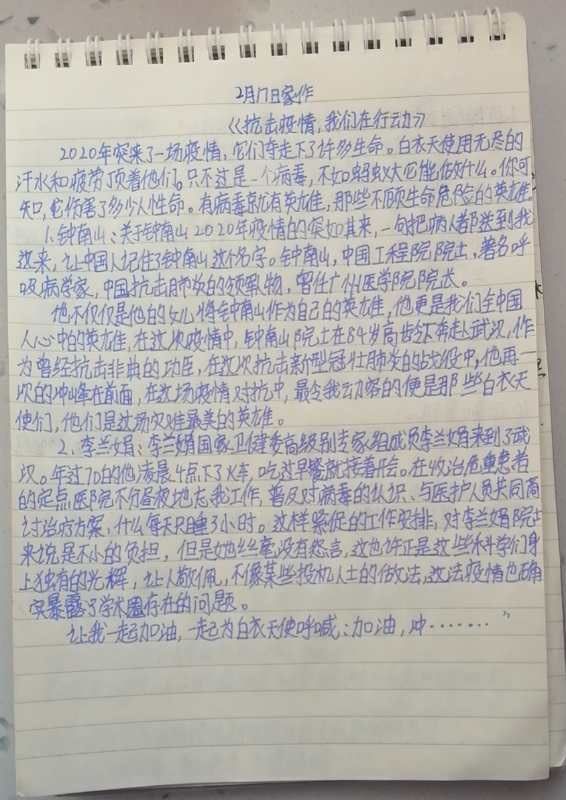 2月17日家作
《抗击疫情,我们在行动》
2020年突来了一场疫情,它们夺走下了许多生命。白衣天使用无尽的
汗水和疲劳顶着他们。只不过是一个病毒,不如蚂蚁大它能做什么。你可
知,它伤害了多少人性命。有病毒就有英雄,那些不顾生命危险的英雄
1、钟南山:关于钟南山2020年疫情的突如其来,一句把病人都送到我
这来,让中国人记住了钟南山这个名字。钟南山,中国工程院院士,著名呼
吸病学家,中国抗击肺炎的领军人物,曾任广州医学院院长。
他不仅仅是他的女儿将钟南山作为自己的英雄,他更是我们全中国
人心中的英雄,在这次疫情中,钟南山院士在84岁高齿令奔赴武汉,作
为曾经抗击非典的功臣,在这次抗击新型冠壮肺炎的战役中,他再一
次的冲峰在前面,在这场疫情对抗中,最令我动容的便是那些白衣天
使们,他们是这场灾难最美的英雄。
2、李兰娟:李兰娟国家卫健委高级别专家组成员李兰娟来到了武
汉。年过70的他凌晨4点下了火车,吃过早餐就接着开会。在收治危重患者
的定点医院不分昼夜地忘我工作,普及对病毒的认识、与医护人员共同商
讨治疗方案,什么每天只睡3小时。这样紧促的工作安排,对李兰娟院士
来说是不小的负担,但是她丝毫没有怨言,这也许正是这些科学们身
上独有的光辉,让人敬佩,不像某些投机人士的做法,这法疫情也确
实暴露了学术圈存在的问题。
让我一起加油,一起为白衣天使呼喊:加油,冲……”